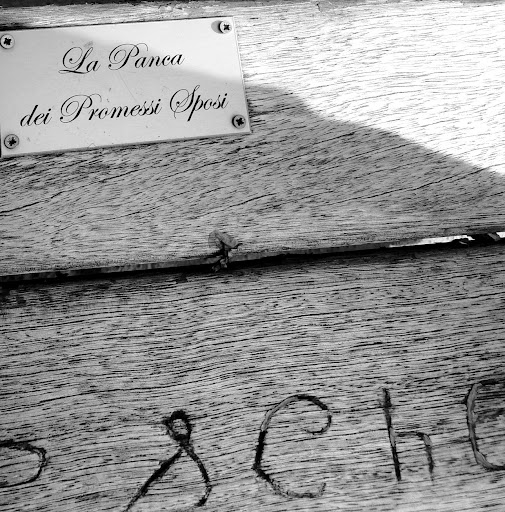 La Panca
dei Promessi Sposi
& Ch